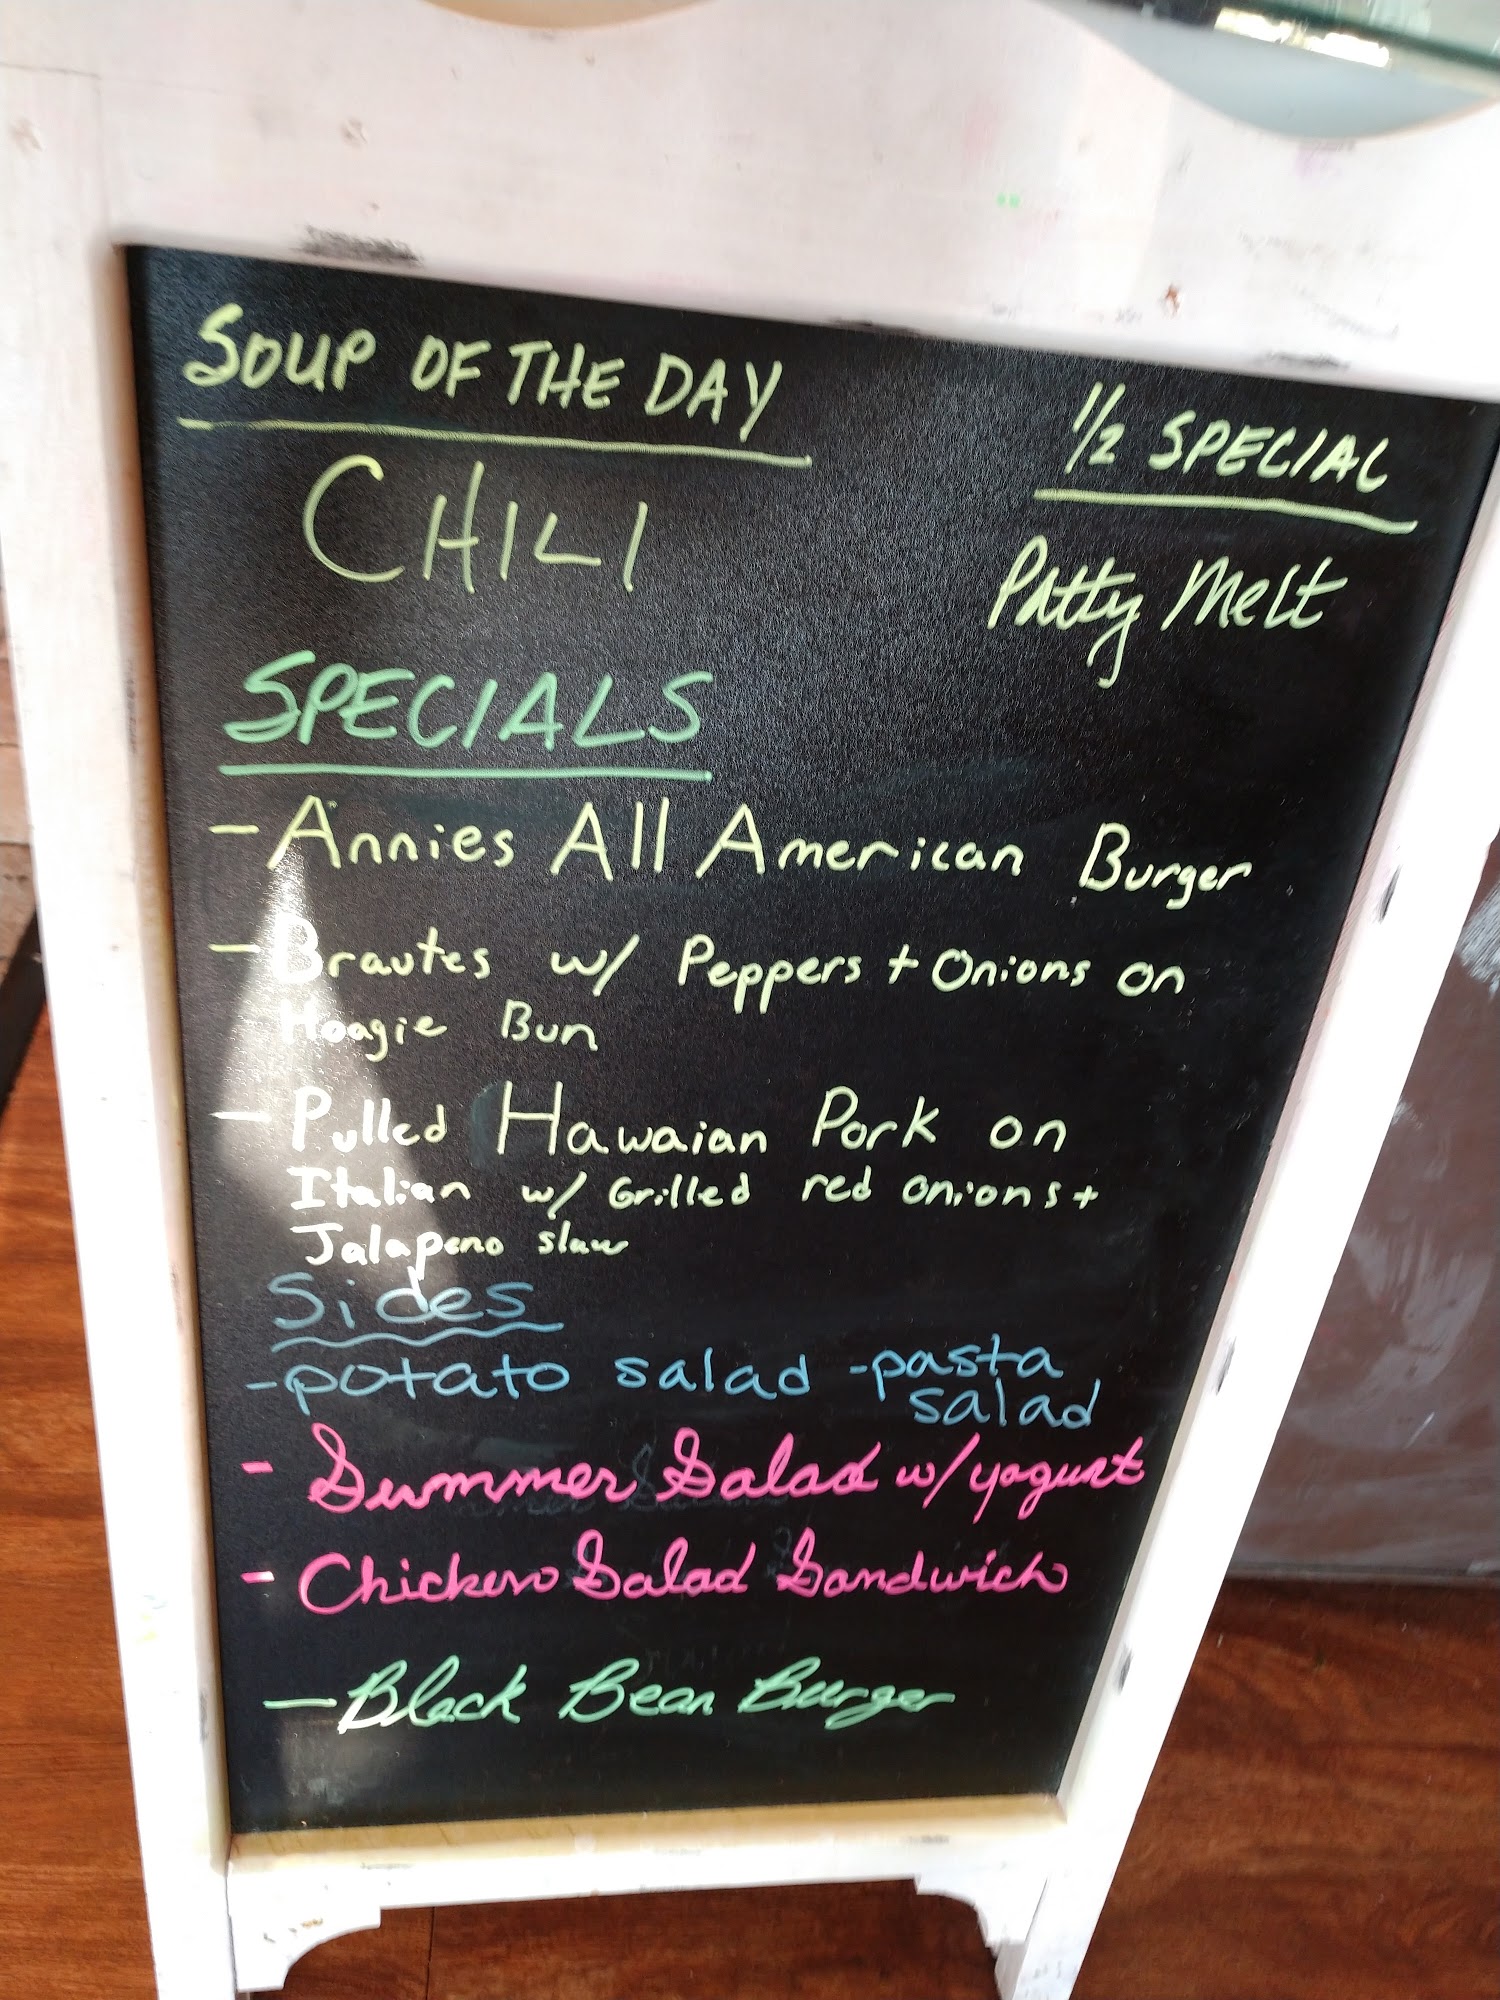 SOUP OF THE DAY
CHILI
1/2 SPECIAL
Patty Melt
SPECIALS
- Annies All American Burger
- Brautes w/ Peppers + Onions on
Hoagie Bun
- Pulled Hawaian Pork on
Italian w/ Grilled red onions +
Jalapeno slaw
Sides
- potato salad - pasta
salad
- Summer Salad w/ yogurt
- Chicken Salad Sandwich
- Black Bean Burger